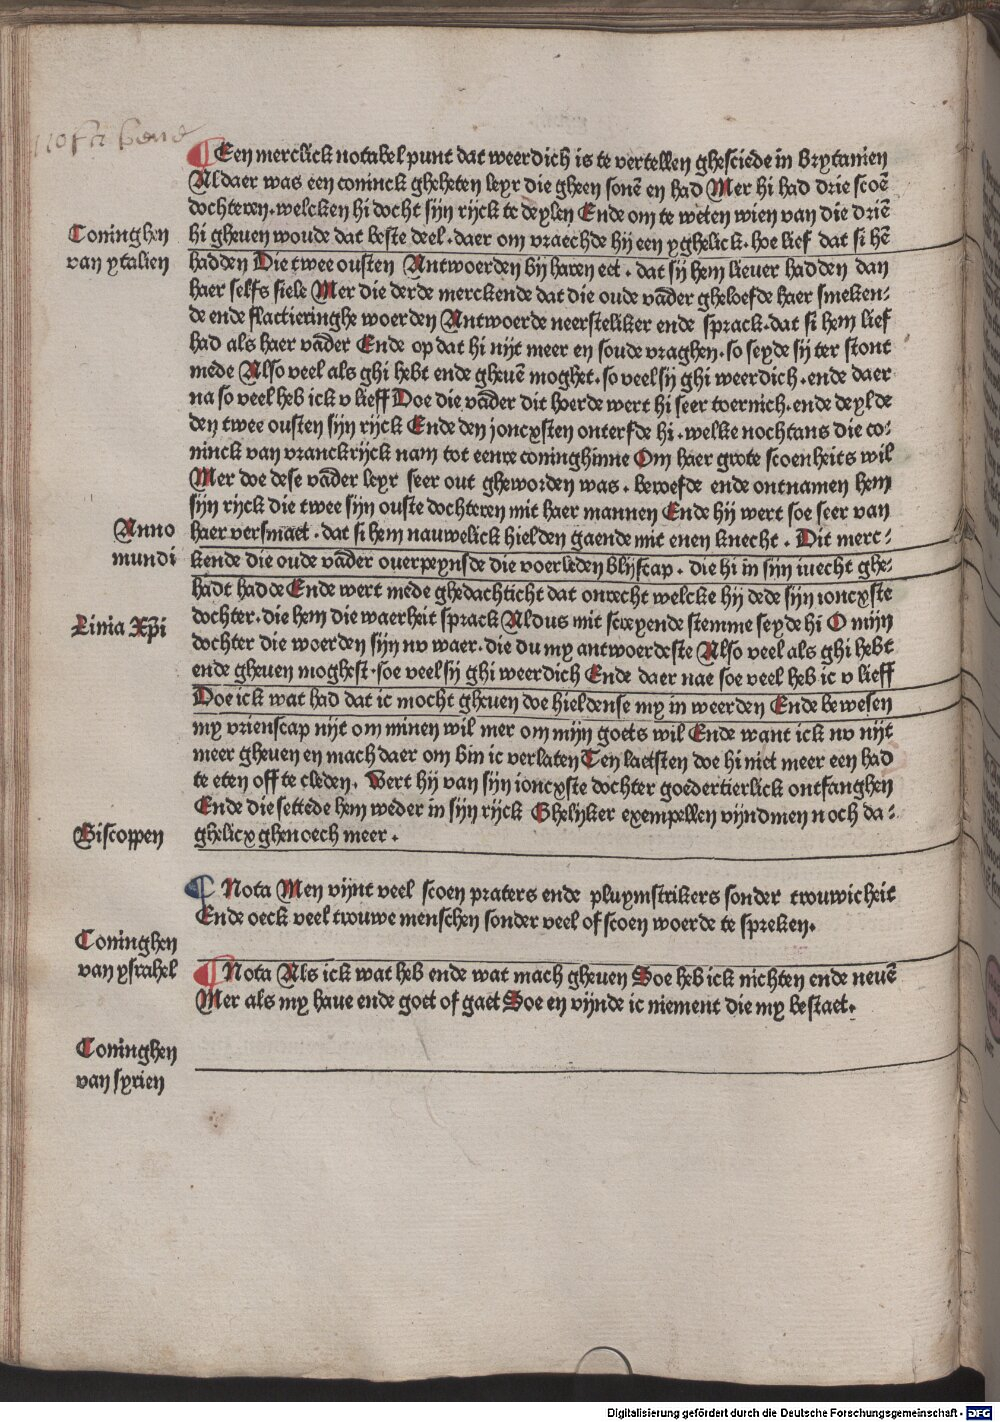 nota bene
¶ Een merclick notabel punt dat weerdich is te vertellen ghesciede in Brytanien
Aldaer was een coninck gheheten leyr die gheen sonē en had Mer hi had drie scoē
dochteren. welcken hi docht sijn rijck te deylen Ende om te weten wien van die driē
Coninghen
van ytalien
hi gheuen woude dat beste deel. daer om vraechde hij een yghelick. hoe lief dat si hē
hadden Die twee ousten Antwoerden bij haren eet. dat sij hem lieuer hadden dan
haer selfs siele Mer die derde merckende dat die oude vāder gheloefde haer smeken:
de ende flactieringhe woerden Antwoerde neersteliker ende sprack. dat si hem lief
had als haer vāder Ende op dat hi nijt meer en soude vraghen. so seyde sij ter stont
mede Also veel als ghi hebt ende gheuē moghet. so veel sij ghi weerdich. ende daer
na so veel heb ick v lieff Doe die vāder dit hoerde wert hi seer toernich. ende deylde
den twee ousten sijn rijck Ende den joncxsten onterfde hi. welke nochtans die co:
ninck van vranckrijck nam tot eenre coninghinne Om haer grote scoenheits wil
Mer doe dese vāder leyr seer out gheworden was. beroefde ende ontnamen hem
sijn rijck die twee sijn ouste dochteren mit haer mannen Ende hij wert soe seer van
Anno
mundi
haer versmaet. dat si hem nauwelick hielden gaende mit enen knecht. Dit merc:
kende die oude vāder ouerpeynsde die voerleden blijscap. die hi in sijn iuecht ghe:
hadt hadde Ende wert mede ghedachticht dat onrecht welcke hij dede sijn ioncxste
Linia Xp̄i
dochter. die hem die waerheit sprack Aldus mit screyende stemme seyde hi O mijn
dochter die woerden sijn nv waer. die du my antwoerdeste Also veel als ghi hebt
ende gheuen moghest. soe veel sij ghi weerdich Ende daer nae soe veel heb ic v lieff
Doe ick wat had dat ic mocht gheuen doe hieldense my in weerden Ende bewesen
my vrienscap nijt om minen wil mer om mijn goets wil Ende want ick nv nijt
meer gheuen en mach daer om bin ic verlaten Ten laetsten doe hi niet meer een had
te eten off te cleden. Wert hij van sijn ioncxste dochter goedertierlick ontfanghen
Ende die settede hem weder in sijn rijck Ghelijker exempellen vijndmen noch da:
Biscoppen
ghelicx ghenoech meer.
¶ Nota Men vijnt veel scoen praters ende pluymstrikers sonder trouwicheit
Ende oeck veel trouwe menschen sonder veel of scoen woerde te spreken.
Coninghen
van ysrahel
¶ Nota Als ick wat heb ende wat mach gheuen Soe heb ick nichten ende neuē
Mer als my haue ende goet of gaet Soe en vijnde ic niement die my bestaet.
Coninghen
van syrien
Digitalisierung gefördert durch die Deutsche Forschungsgemeinschaft - DFG